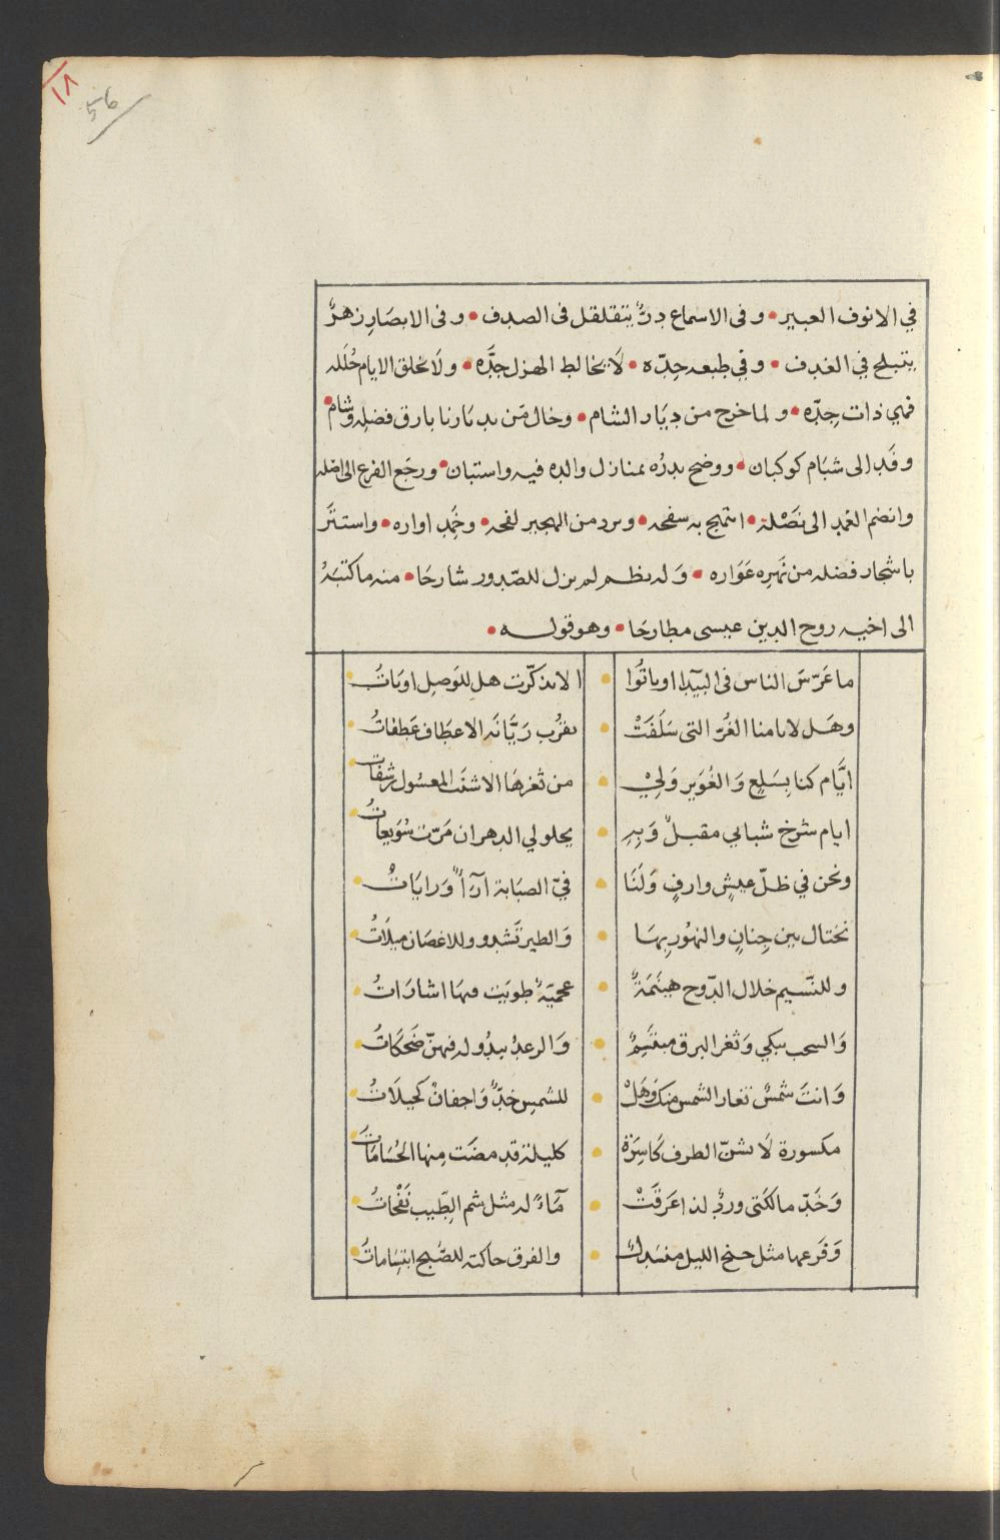 ١٨
56
في الانوف العبير • وفى الاسماع درٌّ يتقلقل فى الصدف • وفى الابصار زهرٌ
يتبلج في الغدف • وفي طبعه حِدّه • لَا يخالط الهزل جِدَّه • ولَا تخلق الايام حُلَله
فهي ذات جِدّه • ولما خرج من دِيَار الشام • وخال مَن بديارنا بارق فضله وشام •
وفَد إلى شبَام كوكبان • ووضح بدرُه بمنازل والده فيه واستبان • ورجَع الفرع الى اصله
وانضم الغمد الى نَصْله • ابتهج به سفحه • وبرد من الهجير لفحه • وخَمد اواره • واستتَر
باشجار فضله من نَهره عَوَاره • وَله نظم لم يزل للصّدور شارحَا • منه ما كتبَهُ
الى اخيه روح الدين عيسى مطارحَا • وهو قوله •
ما عَرّسَ الناس فى البَيدآ او باتُوا • الا تذكّرت هل للوَصِل اوبَاتُ
وهَل لايامنا الغُرّ التى سَلَفَتْ • بقُرب رَيَّانَه الاعطَاف عَطفاتُ
ايَّام كنا بِسَلعٍ وَالغُوَير وَلِيْ • من ثغرهَا الاشنَب المعسُول رشفَاتُ
ايام شرخ شبابي مقبلٌ وَبِهِ • يحلو لي الدهر ان مَرّت سُوَيعاتُ
ونحن في ظلّ عيشٍ وارفٍ وَلَنَا • في الصبَابة آرآءٌ وَرايَاتُ
نختال بين جِنانٍ والنهُور بِهَا • وَالطير تَشدو وللاغصَان ميلَاتُ
وللنّسيم خلال الدّوح هينَمَةٌ • عجميّةٌ طويَت فيهَا اشارَاتُ
وَالسحب تبكي وَثغر البرق مبتَسِمٌ • وَالرعدُ يبدُو له فيهنّ ضَحكَاتُ
وَانتَ شمسٌ تغار الشمس منك وَهَلْ • للشمسِ خدٌّ وَاجفانٌ كحيلَاتُ
مكسورة لَا بشنّ الطرف كَاسِرَة • كليلة قد مضَت مِنها الحُسَامَاتُ
وَخَدّ مالكَتى وردٌ لذا عَرقَتْ • مَآءً له مثل شم الطِّيب نَفْحَاتُ
وَفَرعها مثل جنح الليل منسَدلٌ • والفرق حاكته للصُّبح ابتسَاماتُ